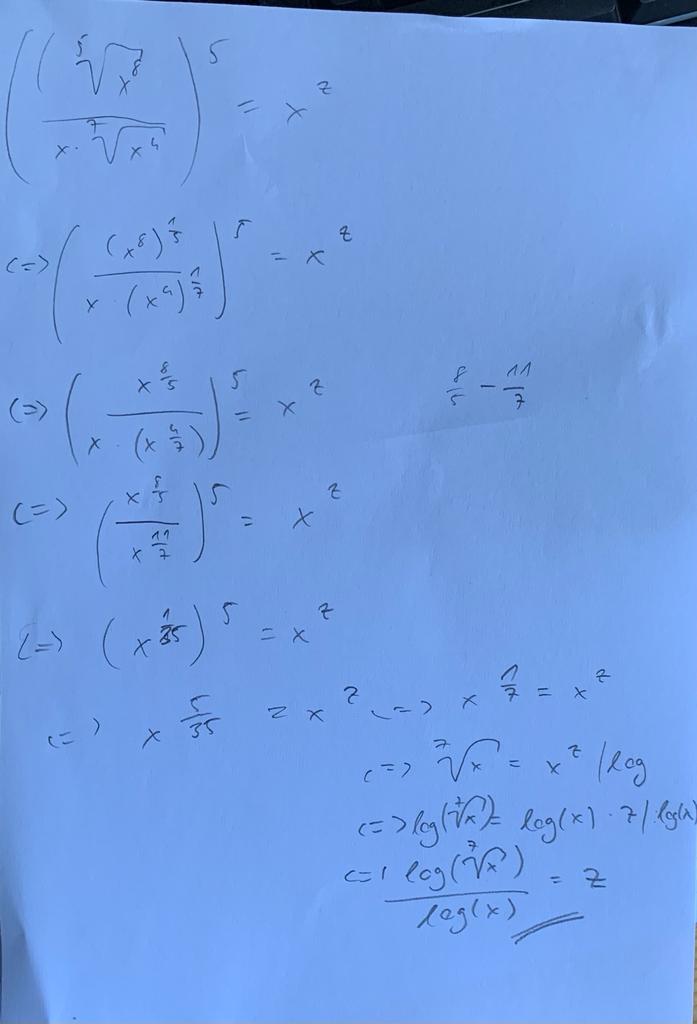 (( ⁵√x⁸ / x · ⁷√x⁴ ))⁵ = x^z
<=> ( (x⁸)^(1/5) / x · (x⁴)^(1/7) )⁵ = x^z
<=> ( x^(8/5) / x · (x^(4/7)) )⁵ = x^z
8/5 − 11/7
<=> ( x^(8/5) / x^(11/7) )⁵ = x^z
<=> ( x^(1/35) )⁵ = x^z
<=> x^(5/35) = x^z <=> x^(1/7) = x^z
<=> ⁷√x = x^z /log
<=> log(⁷√x) = log(x) · z /:log(x)
<=> log(⁷√x) / log(x) = z